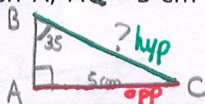 B
35
? hyp
A
5 cm
opp
C